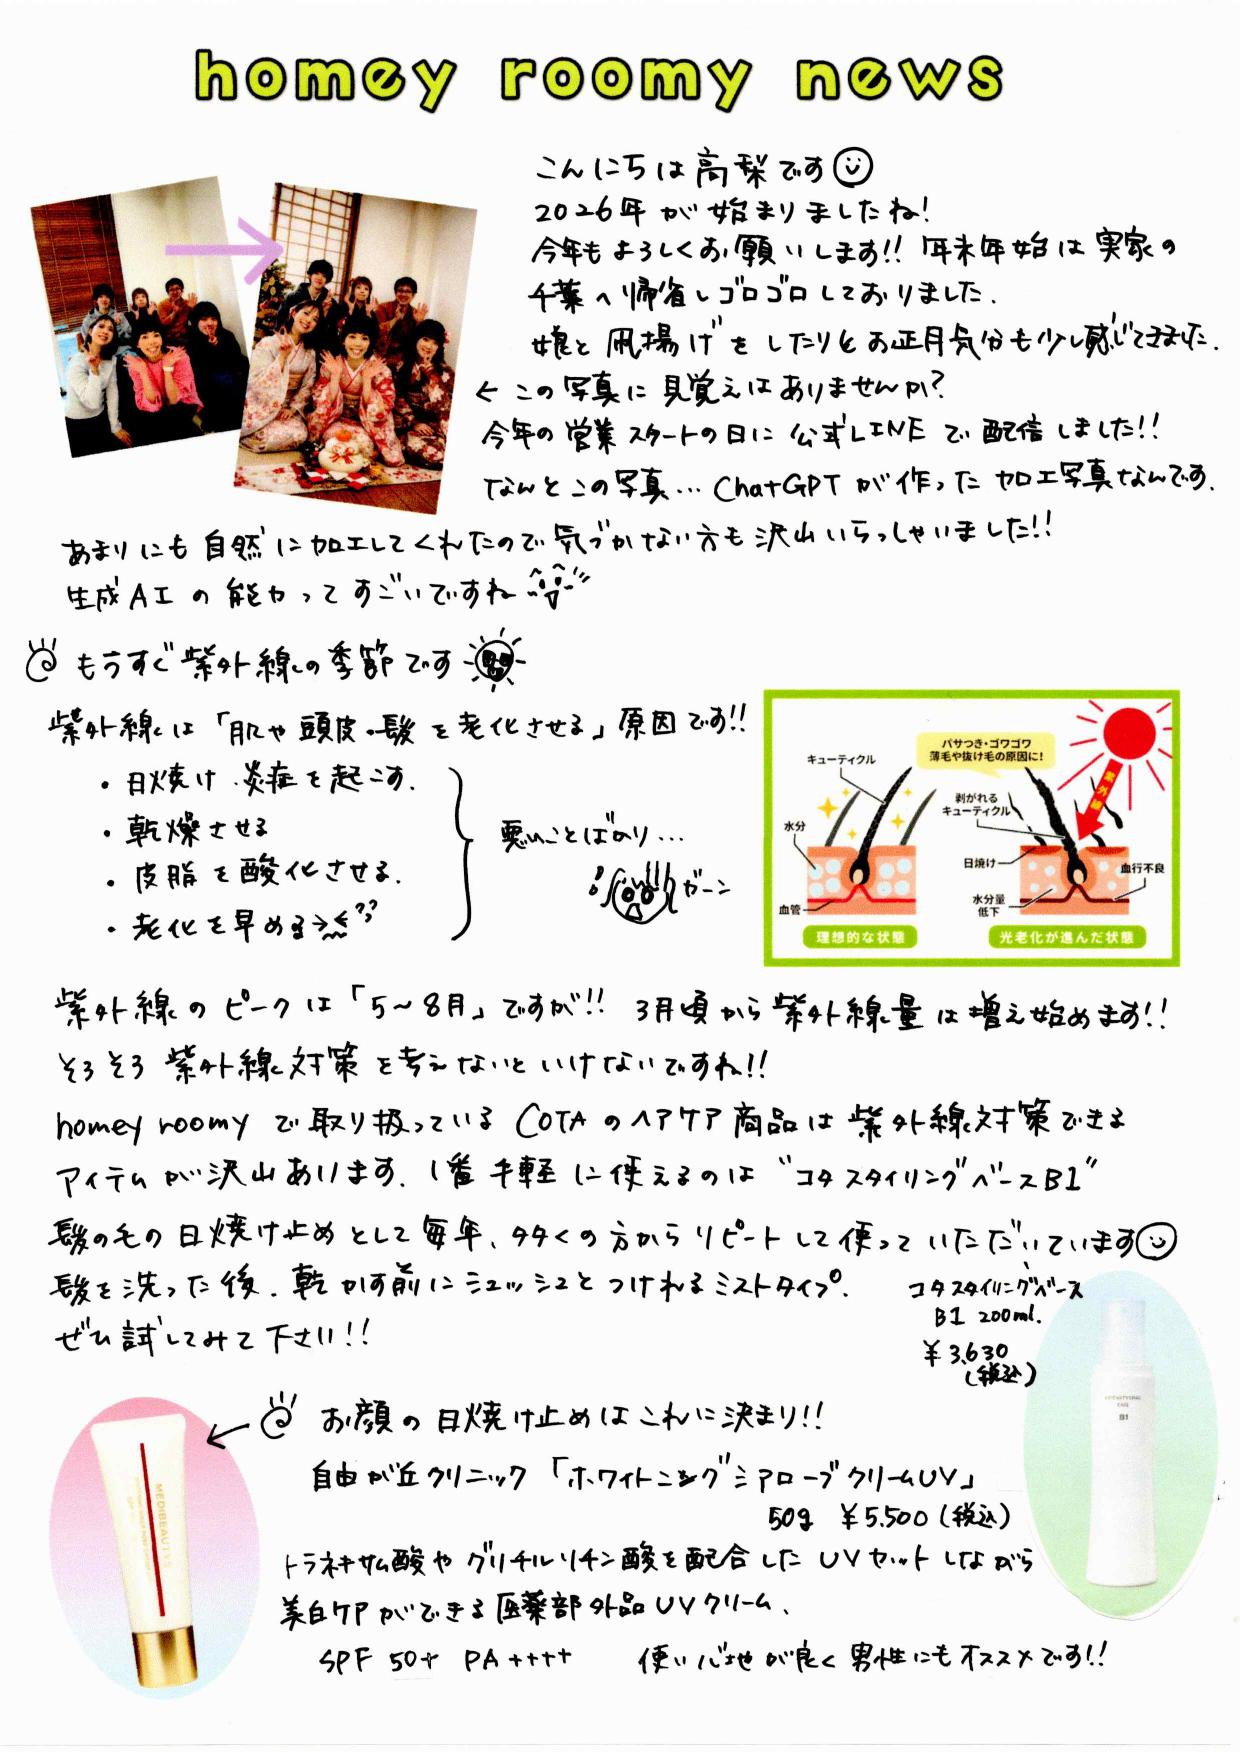 homey roomy news
こんにちは高梨です
2026年が始まりましたね！
今年もよろしくお願いします!! 年末年始は実家の
千葉へ帰省しゴロゴロしておりました.
娘と凧揚げをしたりとお正月気分も少し感じてきました.
← この写真に見覚えはありませんか?
今年の営業スタートの日に公式LINEで配信しました!!
なんとこの写真…ChatGPTが作った加工写真なんです.
あまりにも自然に加工してくれたので気づかない方も沢山いらっしゃいました!!
生成AIの能力ってすごいですね
もうすぐ紫外線の季節です
紫外線は「肌や頭皮・髪を老化させる」原因です!!
・日焼け.炎症を起こす.
・乾燥させる
・皮脂を酸化させる.
・老化を早める
悪いことばかり…
ガーン
パサつき・ゴワゴワ
薄毛や抜け毛の原因に!
キューティクル
水分
血管
理想的な状態
紫外線
剥がれる
キューティクル
日焼け
血行不良
水分量
低下
光老化が進んだ状態
紫外線のピークは「5〜8月」ですが!! 3月頃から紫外線量は増え始めます!!
そろそろ紫外線対策を考えないといけないですね!!
homey roomyで取り扱っているCOTAのヘアケア商品は紫外線対策できる
アイテムが沢山あります. 1番手軽に使えるのは"コタスタイリングベースB1"
髪の毛の日焼け止めとして毎年、多くの方からリピートして使っていただいています
髪を洗った後.乾かす前にシュッシュとつけれるミストタイプ.
ぜひ試してみて下さい!!
コタスタイリングベース
B1 200ml.
¥3,630
(税込)
B1
お顔の日焼け止めはこれに決まり!!
自由が丘クリニック「ホワイトニングシアローブクリームUV」
50g ¥5,500(税込)
トラネキサム酸やグリチルリチン酸を配合したUVカットしながら
美白ケアができる医薬部外品UVクリーム.
SPF 50+ PA++++ 使い心地が良く男性にもオススメです!!
MEDIBEAUTY